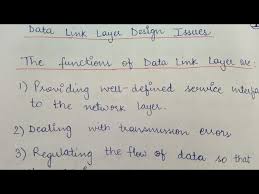 Data Link Layer Design Issues
The functions of Data Link Layer are:
1) Providing well-defined service interfa
to the network layer.
2) Dealing with transmission errors
3) Regulating the flow of data so that